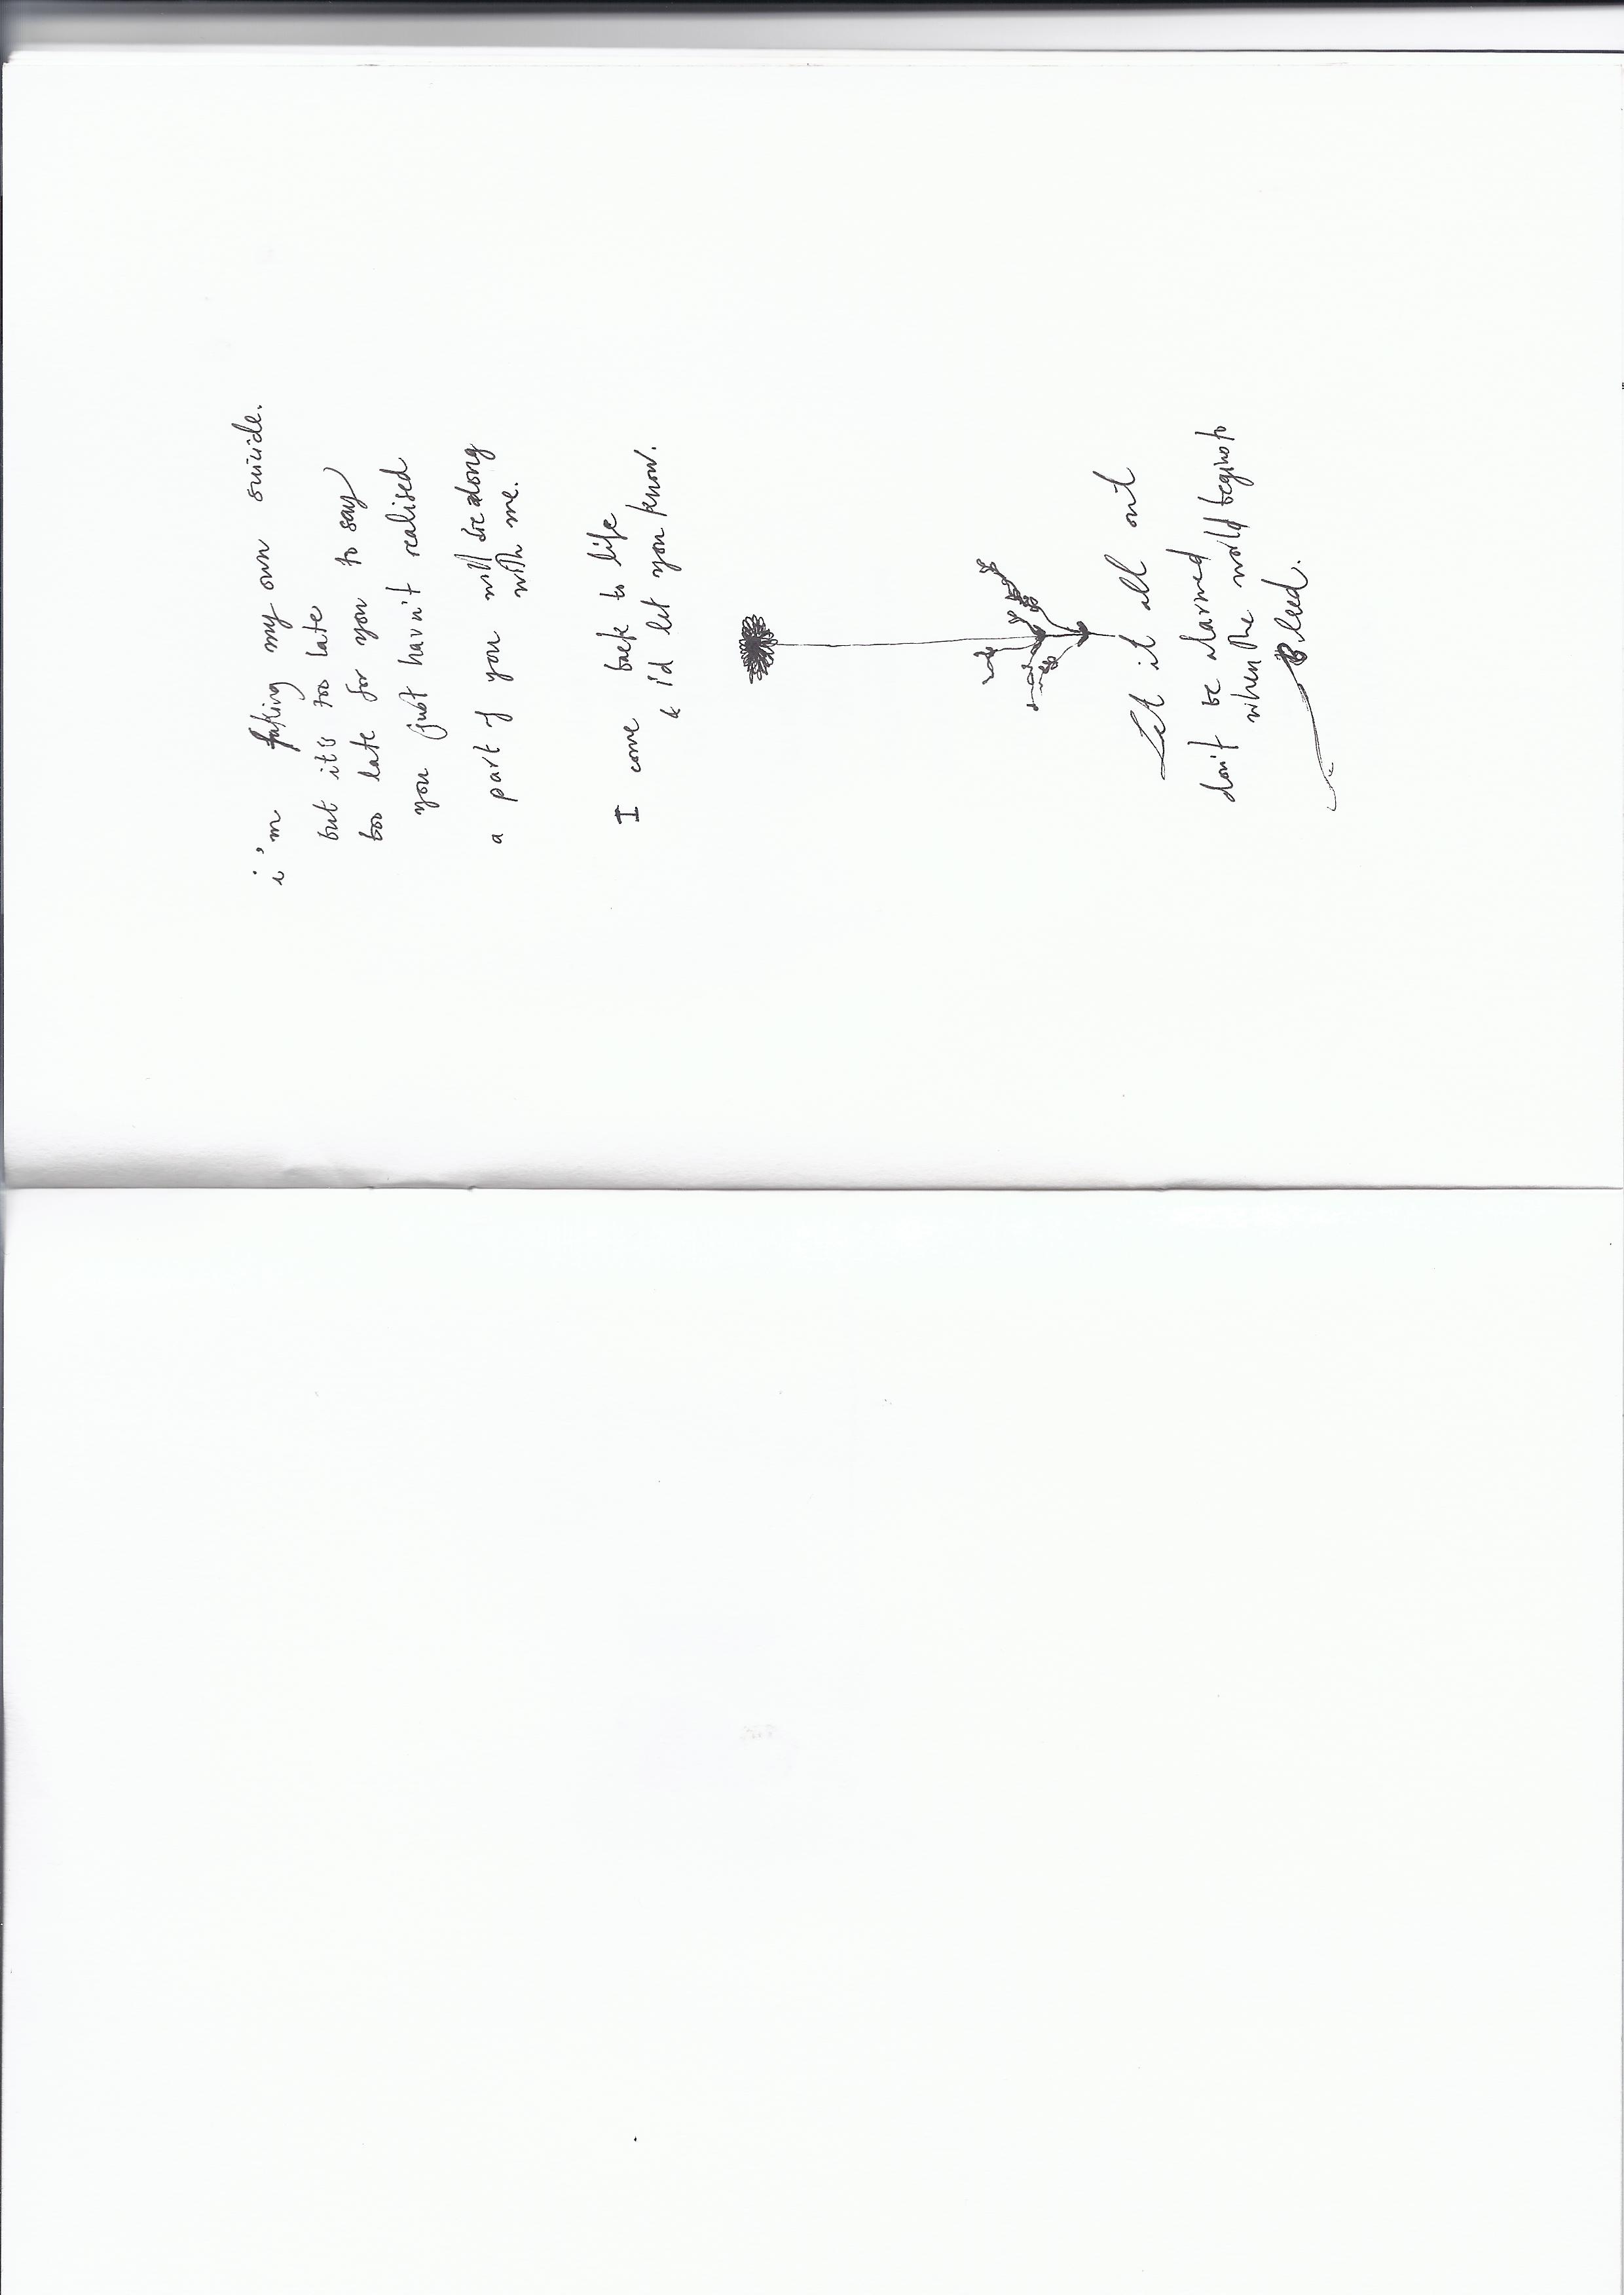 i'm faking my own suicide.
but it's too late
too late for you to say
you just havn't realised
a part of you will die along
with me.
I come back to life
& i'd let you know.
Let it all out
don't be alarmed
when the world begins to
Bleed.